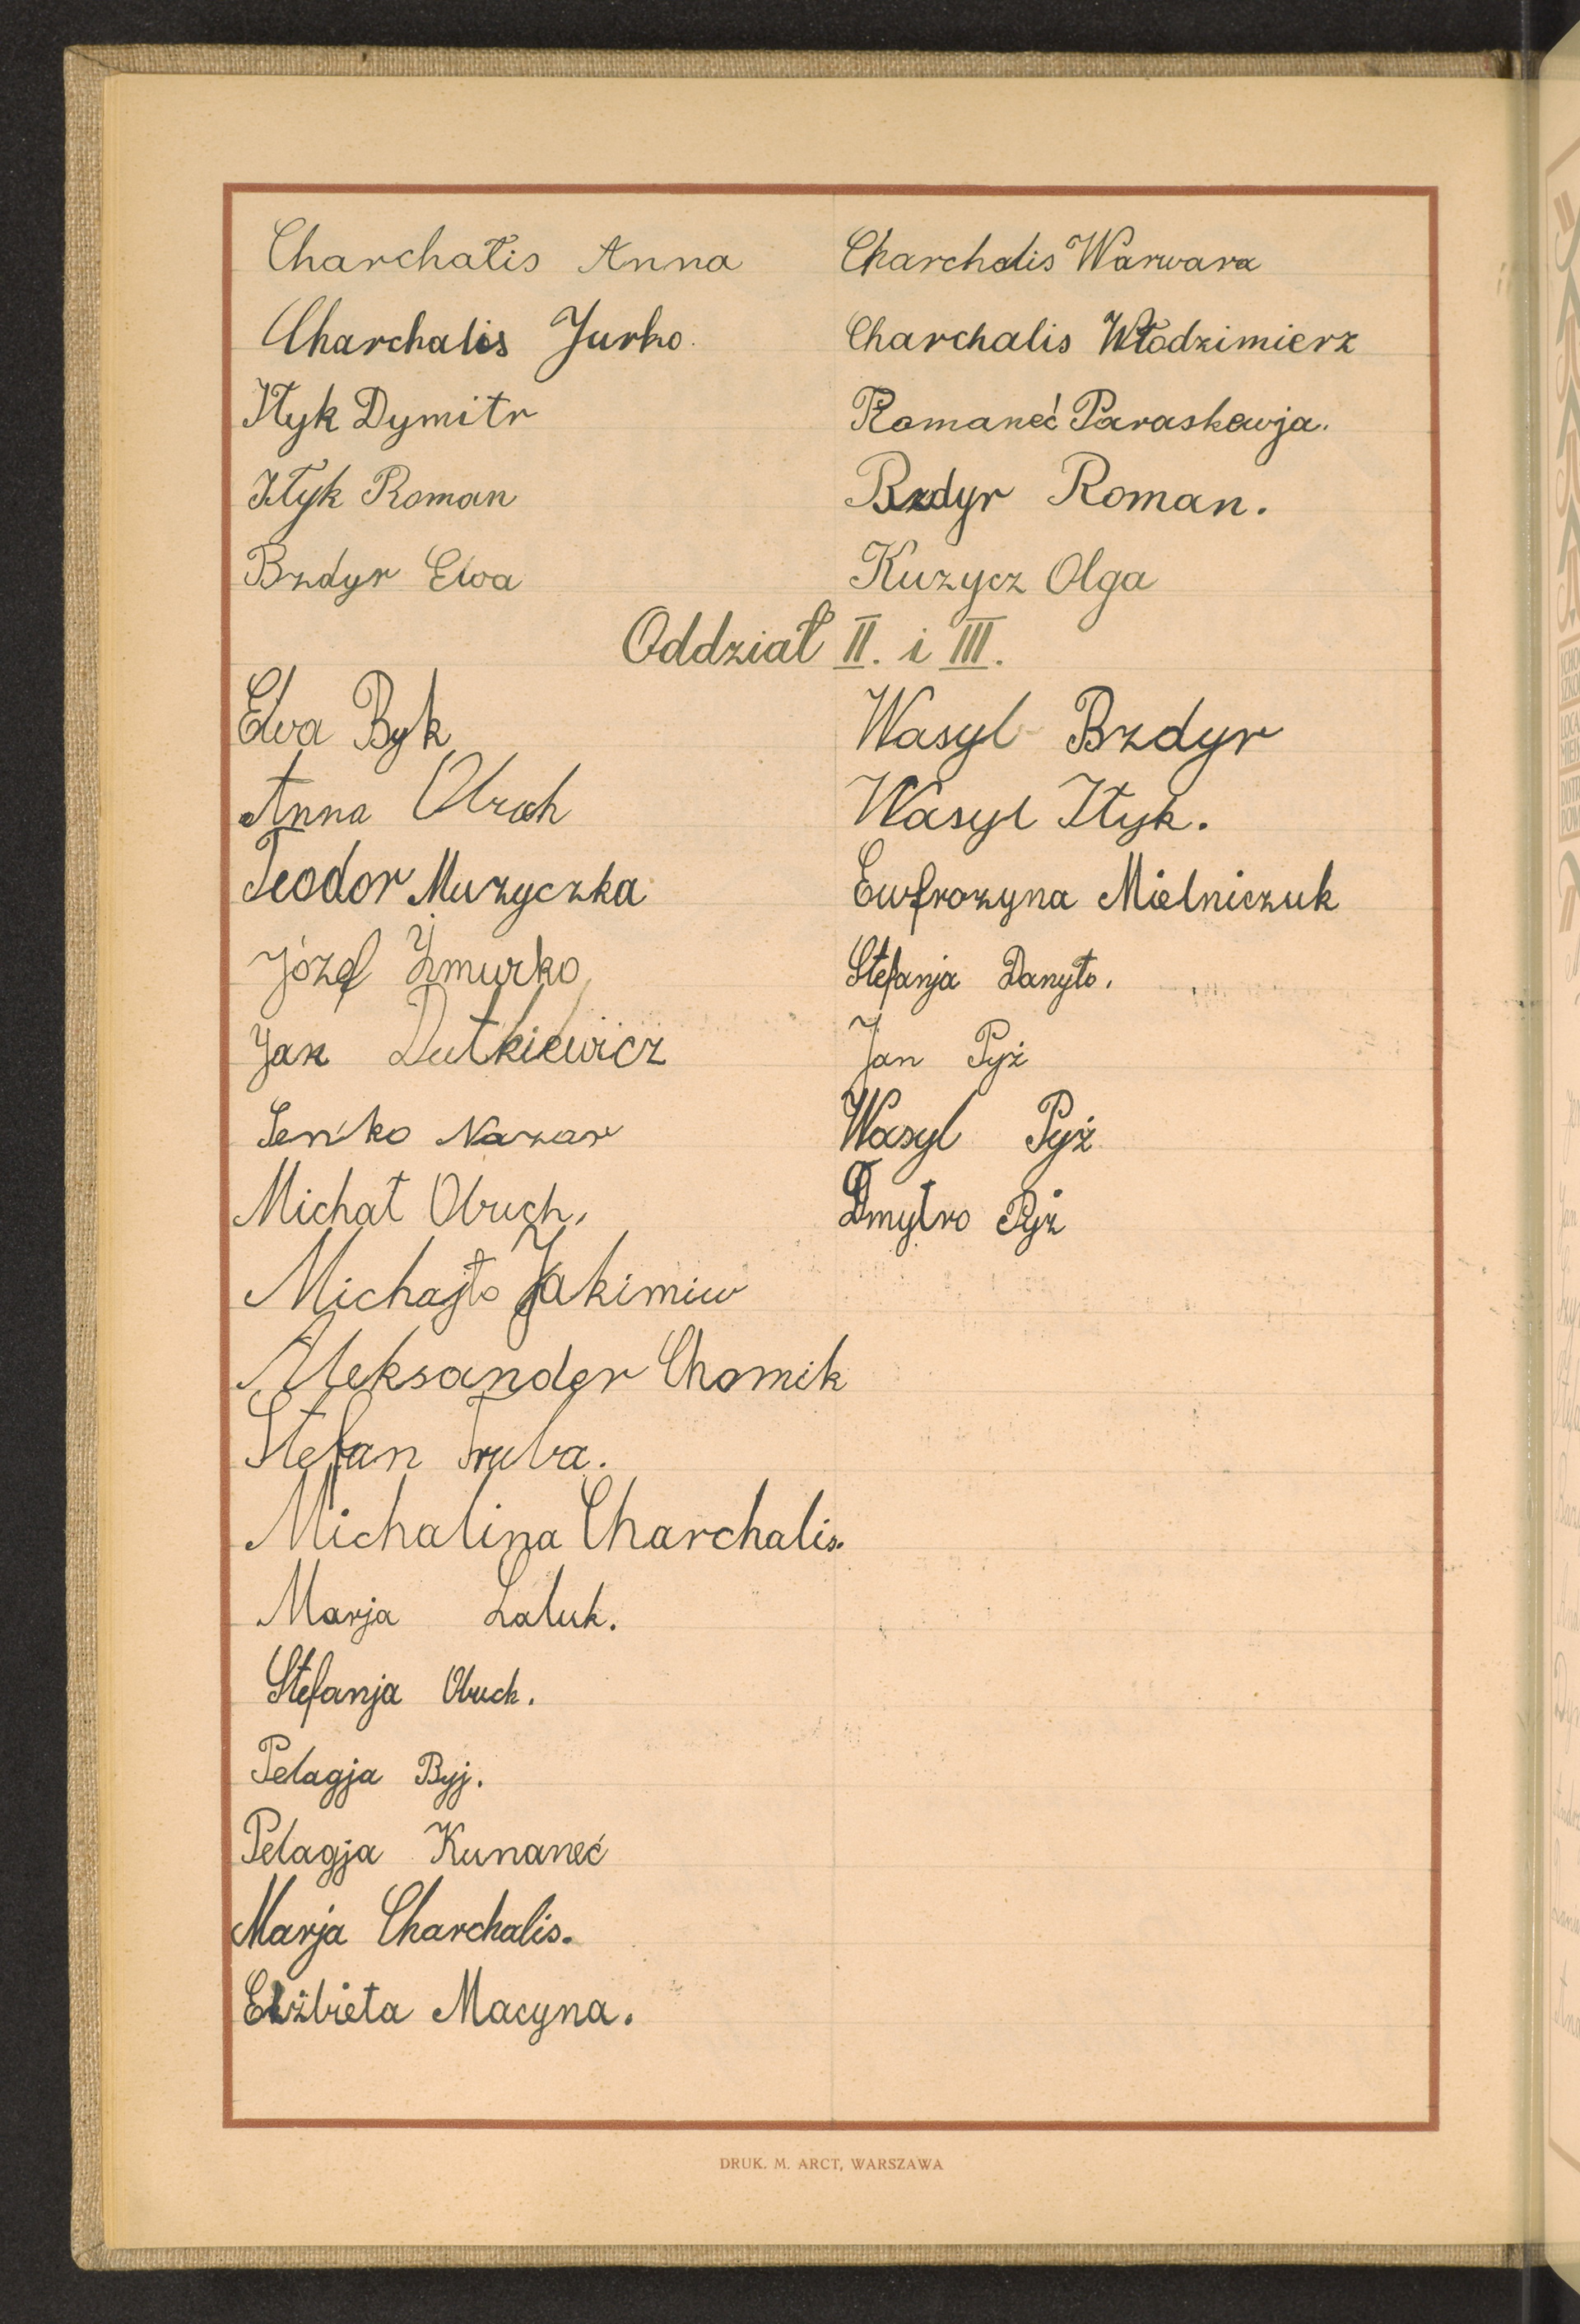 Charchalis Anna
Charchalis Jurko.
Ityk Dymitr
Ityk Roman
Bzdyr Ewa
Charchalis Warwara
Charchalis Włodzimierz
Romaneć Paraskewja.
Bzdyr Roman.
Kuzycz Olga
Oddział II. i III.
Ewa Byk
Anna Obuch
Teodor Muzyczka
Józef Żmurko
Jan Dutkiewicz
Seńko Nazar
Michał Obuch,
Michajło Jakimiw
Aleksander Chomik
Stefan Truba.
Michalina Charchalis.
Marja Laluk.
Stefanja Obuch.
Pelagja Byj.
Pelagja Kunaneć
Marja Charchalis.
Elżbieta Macyna.
Wasyl Bzdyr
Wasyl Ityk.
Ewfrozyna Mielniczuk
Stefanja Danyło.
Jan Pyż
Wasyl Pyż
Dmytro Pyż
DRUK. M. ARCT, WARSZAWA